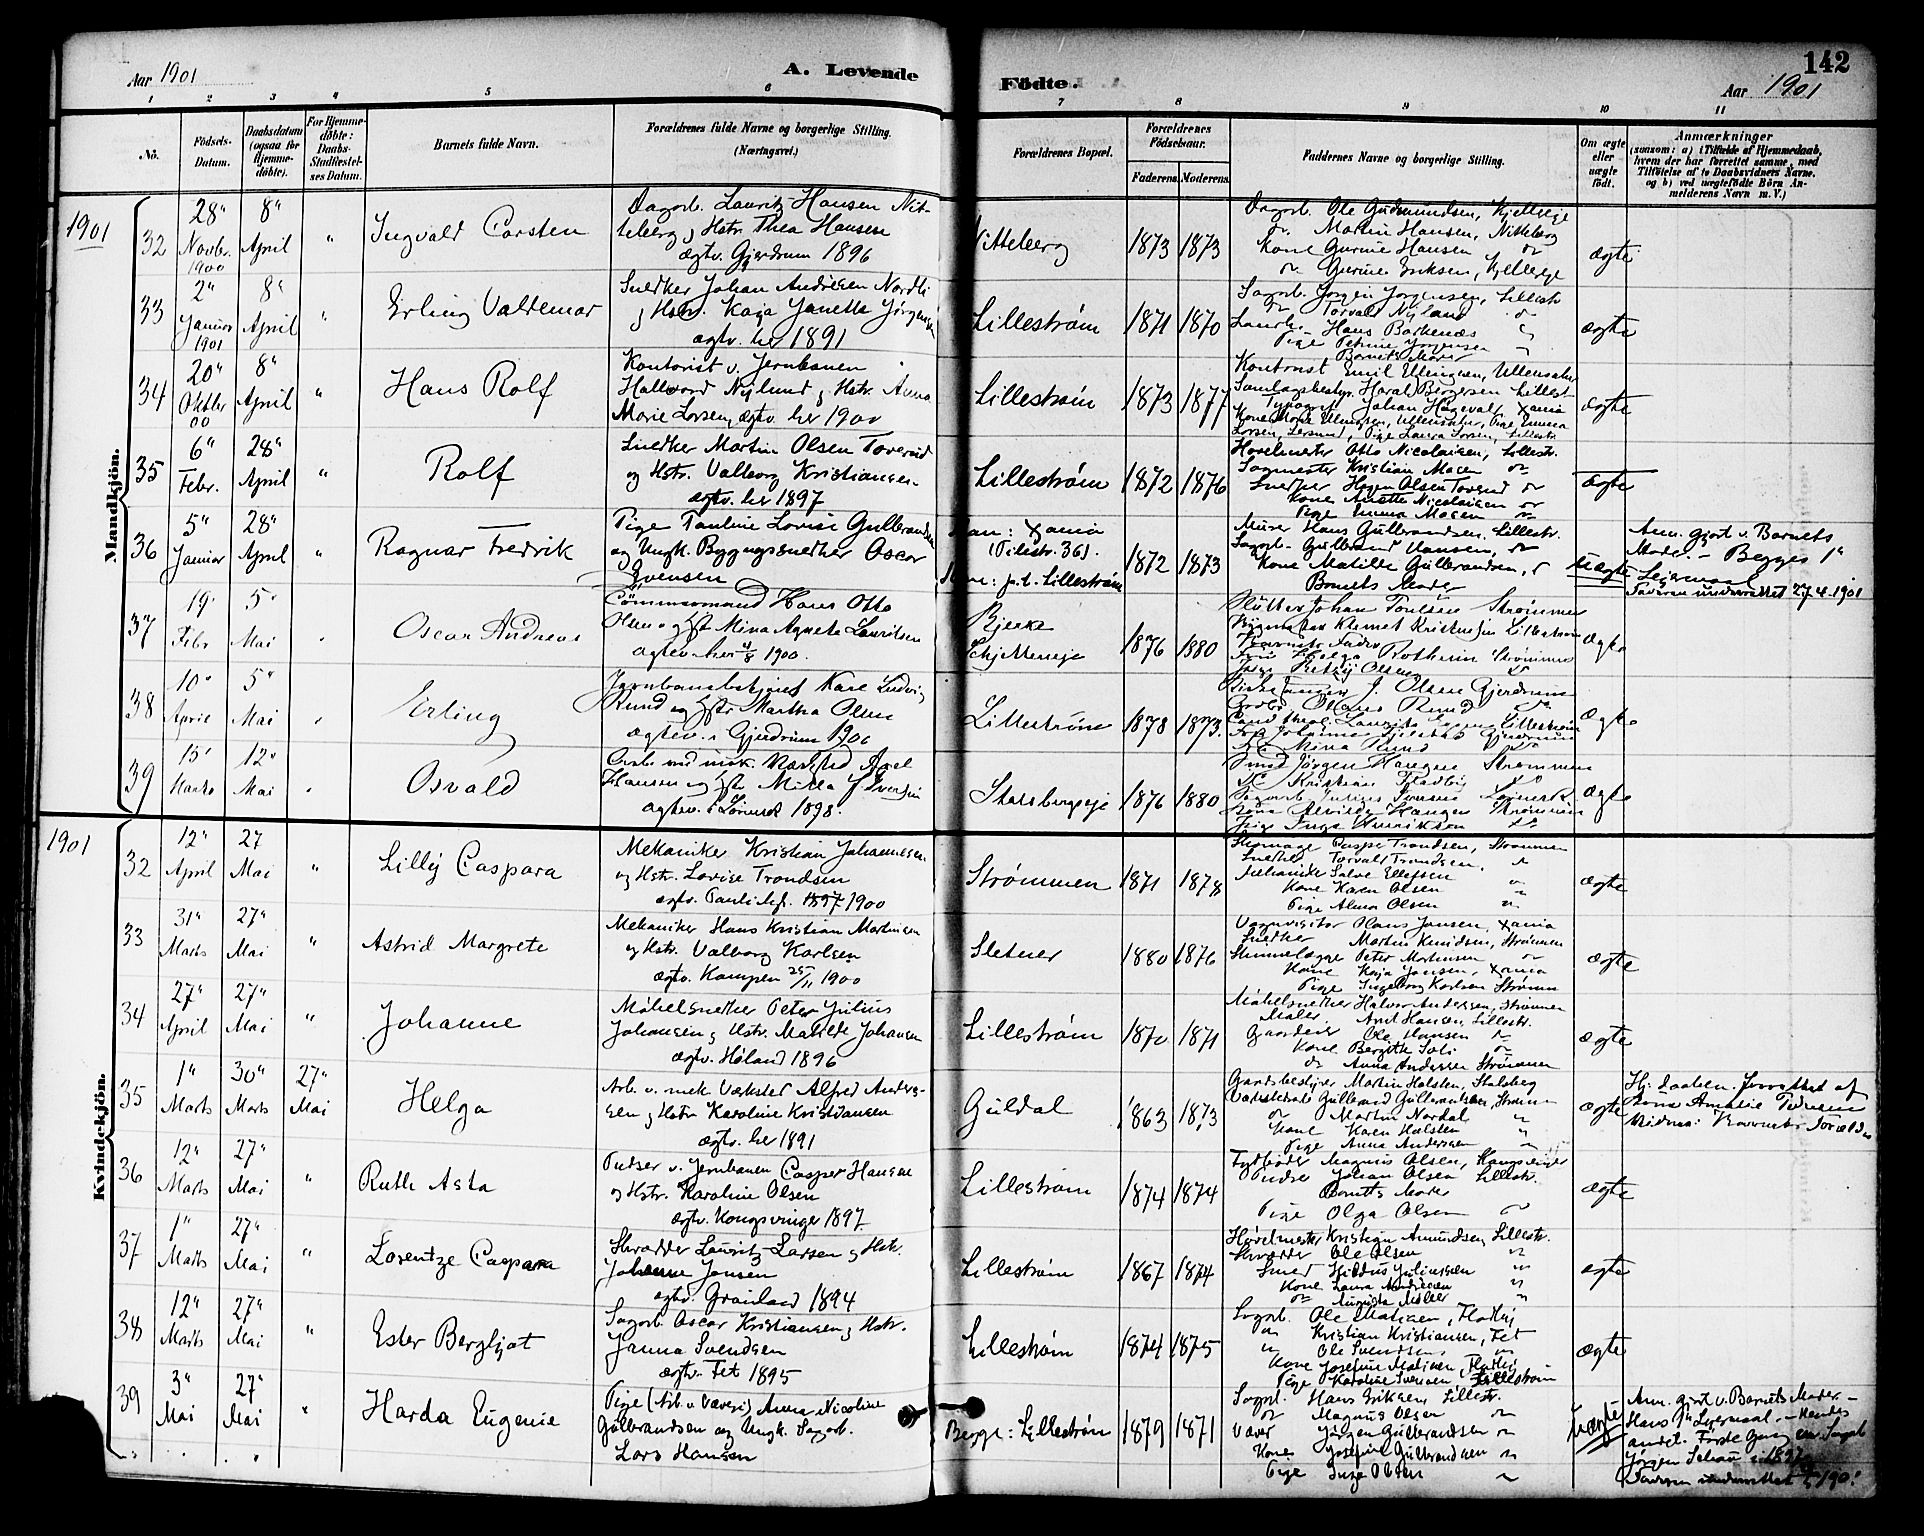 Aar 1901
A. Levende
Födte.
142
Aar 1901
1 2 3 4 5 6 7 8 9 10 11
No.
Födsels-
Datum.
Daabsdatum
(ogsaa for
Hjemme-
döbte).
For Hjemme-
döbte:
Daabs-
Stadfæstel-
ses Datum.
Barnets fulde Navn.
Forældrenes fulde Navne og borgerlige Stilling.
(Næringsvei.)
Forældrenes Bopæl.
Forældrenes
Födselsaar.
Faderens. Moderens.
Faddernes Navne og borgerlige Stilling.
Om ægte
eller
uægte
födt.
Anmærkninger
(saasom: a) i Tilfælde af Hjemmedaab,
hvem der har forrettet samme, med
Tilföielse af to Daabsvidners Navne.
og b) ved uægtefödte Börn An-
melderens Navn m. V.)
Mandkjön.
1901
32
28"
Novbr.
1900
8"
April
"
Ingvald Carsten
Dagarb. Lauritz Hansen Nit-
teberg & Hstr. Thea Hansen
ægtv. Gjerdrum 1896
Nitteberg
1873 1873
Dagarb. Ole Gudmundsen, Kjelleje
do. Martin Hansen, Nitteberg
Kone Gurine Hansen do
do. Gurine Eriksen, Kjelleje
ægte
33
2"
Januar
1901
8"
April
"
Erling Valdemar
Snedker Johan Andresen Nordli
& Hstr. Kaja Janette Jörgensen
ægtv. her 1891
Lilleström
1871 1870
Sagarb. Jörgen Jörgensen, Lillestr.
do Torvald Nyland do
Hans Barkenæs
Pige Petrine Jörgensen
Barnets Moder
ægte
34
20"
Oktbr
00
8"
April
"
Hans Rolf
Kontorist v. Jernbanen
Hallvord Nylund & Hstr. Anna
Marie Lorsen, ægtv. her 1900
Lilleström
1873 1877
Kontorist Emil Ellingsen, Ullensaker
Samlagsbestyr. Harald Börgersen Lillest.
Typograf Johan Hageval, Xania
Kone Marie Ellingsen, Ullensaker, Pige Emma
Lorsen, Pige Laura Lorsen, Lillestr.
ægte
35
6"
Febr.
28"
April
"
Rolf
Snedker Martin Olsen Toverud
og Hstr. Valborg Kristiansen
ægtv. her 1897
Lilleström
1872 1876
Hövelmester Otto Nicolaisen, Lillestr.
Sagmester Kristian Moen do
Snedker Hagen Olsen Toverud do
Kone Anette Nicolaisen do
Pige Emma Moen do
ægte
36
5"
Januar
28"
April
"
Ragnar Fredrik
Pige Pauline Lovise Gulbrandsen
og Ungk. Bygningssnedker Oscar
Svensen
Xania
(Pilestr. 36).
p.t. Lilleström
1872 1873
Murer Hans Gulbrandsen, Lillestr.
Sagarb. Gulbrand Hansen, do
Kone Matilde Gulbrandsen, do
Barnets Moder
uægte
Anm. gjort v. Barnets
Moder. - Begges 1"
Leiermaal
Faderen underrettet 27.4.1901
37
19'
Febr
5"
Mai
"
Oscar Andreas
Tömmermand Hans Otto
Olsen og Hstr Mina Agnete Lauritsen
ægtev. her 4/8 1900.
Bjerke
Skjetteneje
1876 1880
Johan Poulsen Strömmen
Klemet Kristensen Lilleström
Barnets Fader
Helga Rotheim Strömmen
Pige Betzy Olsen
ægte
38
10"
April
5"
Mai
"
Erling
Jernbanebetjent Karl Ludvig
Rund og Hstr. Martha Olsen
ægtev. i Gjerdrum 1900
Lilleström
1878 1873.
J. Olsen Gjerdrum
Olaus Rund
Lilleström
Gjerdrum
Mina Rund
ægte
39
15'
Marts
12"
Mai
"
Osvald
Arb. ved mek. Værksted Axel
Hansen og Hstr Milla J. Svensen
ægtev. i Lörensk. 1898.
Stalsbergeje
1876 1880
Smed Jörgen Haugen Strömmen
Kristian Fladby
Julius Svensen Lörensk.
Kone Alvilde Haugen Strömmen
Pige Inga Henriksen
ægte
Kvindekjön.
1901
32
12"
April
27
Mai
"
Lilly Caspara
Mekaniker Kristian Johannesen
og Hstr. Lovise Trondsen
ægtv. 1897 1900
Strömmen
1871 1878
Casper Trondsen, Strömmen
Snedker Torvald Trondsen
Mekaniker Salve Ellefsen
Kone Karen Olsen
Pige Alma Olsen
ægte
33
31"
Marts
27"
Mai
"
Astrid Margrete
Mekaniker Hans Kristian Martinsen
og Hstr. Valborg Karlsen
ægtv. Kampen 25/11 1900
Sletner
1880 1876
Vognvisitor Olaus Jansen, Xania
Snedker Martin Knudsen, Strömmen
Peter Martinsen do
Kone Kaja Jansen, Xania
Pige Ingeborg Karlsen Strömm
ægte
34
27"
April
27"
Mai
"
Johanne
Möbelsnedker Peter Julius
Johansen & Hstr. Matilde Johansen
ægtv. Höland 1896
Lilleström
1870 1871
Möbelsnedker Halvor Andersen, Strömmen
Maler Axel Hansen, Lillestr.
Gaardeier Ole Hansen do
Kone Bergitte Soli do
do Anna Andersen Strömmen
ægte
35
1"
Marts
30"
Marts
27"
Mai
Helga
Arb. v. mek. Værksted Alfred Anders-
sen & Hstr. Karoline Kristiansen
ægtv. her 1891
Guldal
1863 1873
Gaardsbestyrer Martin Holsten, Stalsberg
Gulbrand Gulbrandsen, Strömmen
do Martin Nordal "
Kone Karen Holsten "
Pige Anna Andersen "
ægte
Hj. daaben forrettet af
Kone Amalie Pedersen
Barnets Forældre
36
12"
Marts
27"
Mai
"
Ruth Asta
Pudser v. Jernbanen Casper Hansen
og Hstr. Karoline Olsen
ægtv. Kongsvinger 1897
Lilleström
1874 1874
Magnus Olsen, Kongsvinger
Pudser Johan Olsen Lillestr.
Barnets Moder
Pige Olga Olsen do
ægte
37
1"
Marts
27"
Mai
"
Lorentze Caspara
Skrædder Lauritz Larsen & Hstr.
Johanne Jansen
ægtv. Grönland 1894
Lilleström
1867 1874
Hövelmester Kristian Amundsen, Lillestr.
Skrædder Ole Olsen "
Smed Hildus Juliussen "
Kone Laura Andresen "
do Augusta Möller "
ægte
38
12"
Marts
27"
Mai
"
Ester Bergljot
Sagarb. Oscar Kristiansen & Hstr.
Janna Svendsen
ægtv. Fet 1895
Lilleström
1874 1875
Sagarb. Ole Matisen, Fladbÿ
do Kristian Kristiansen, Fet
" Ole Svendsen "
Kone Josefine Matisen, Fladbÿ
Pige Karoline Svensen Lilleström
ægte
39
3"
Mai
27"
Mai
"
Harda Eugenie
Pige (Arb. v. Væveri) Anna Nicoline
Gulbrandsen og Ungk. Sagarb.
Lars Hansen
Begge: Lilleström
1879 1871
Sagarb. Hans Eriksen Lillestr.
do Magnus Olsen do
Væver Jörgen Gulbrandsen do
Kone Josefine Gulbrandsen do
Pige Inga Olsen "
uægte
Anm. gjort v. Barnets Moder. -
Hans 1ste Leiermaal - Hendes
andet. Förste Gang
Jörgen 1897
Faderen underrettet 1901